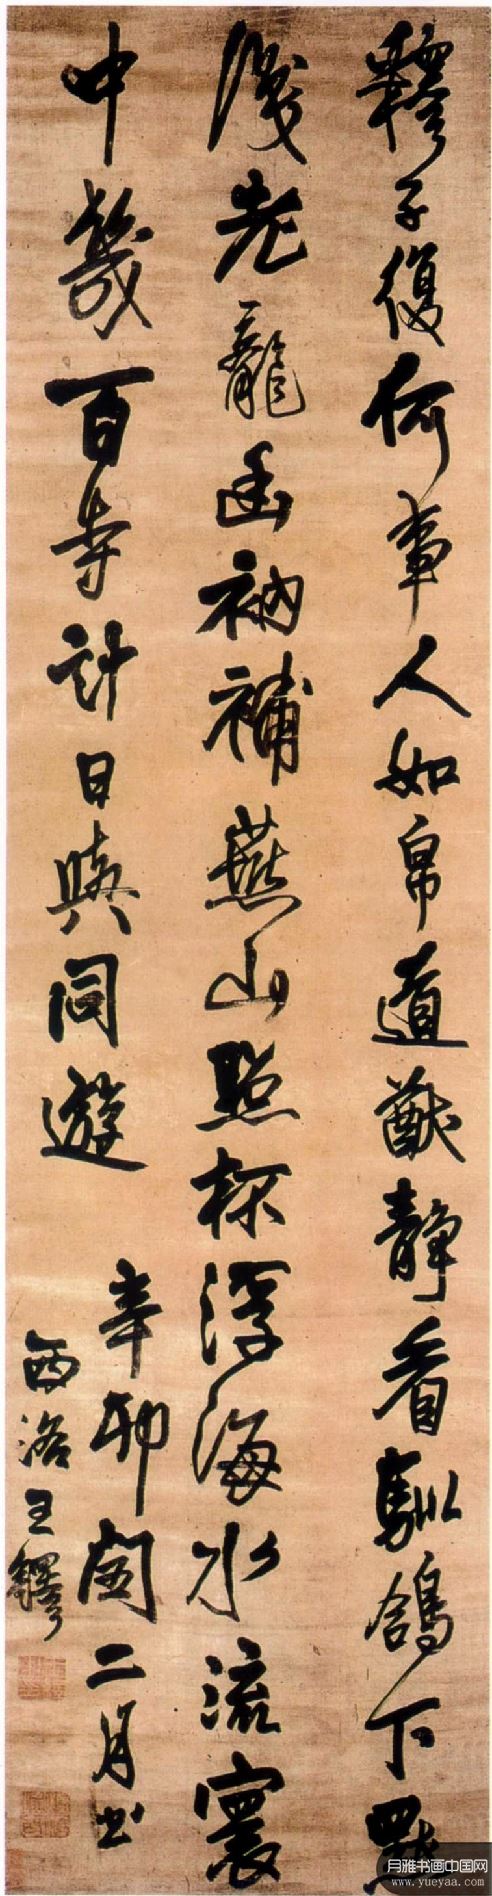 釋子復何事人如帛道猷靜看馴鴿下默
識老龍幽衲補燕山照杯浮海水流寰
中幾百寺計日與同遊
辛卯閏二月書
西洛王鐸
月雅书画中国网
www.yueyaa.com